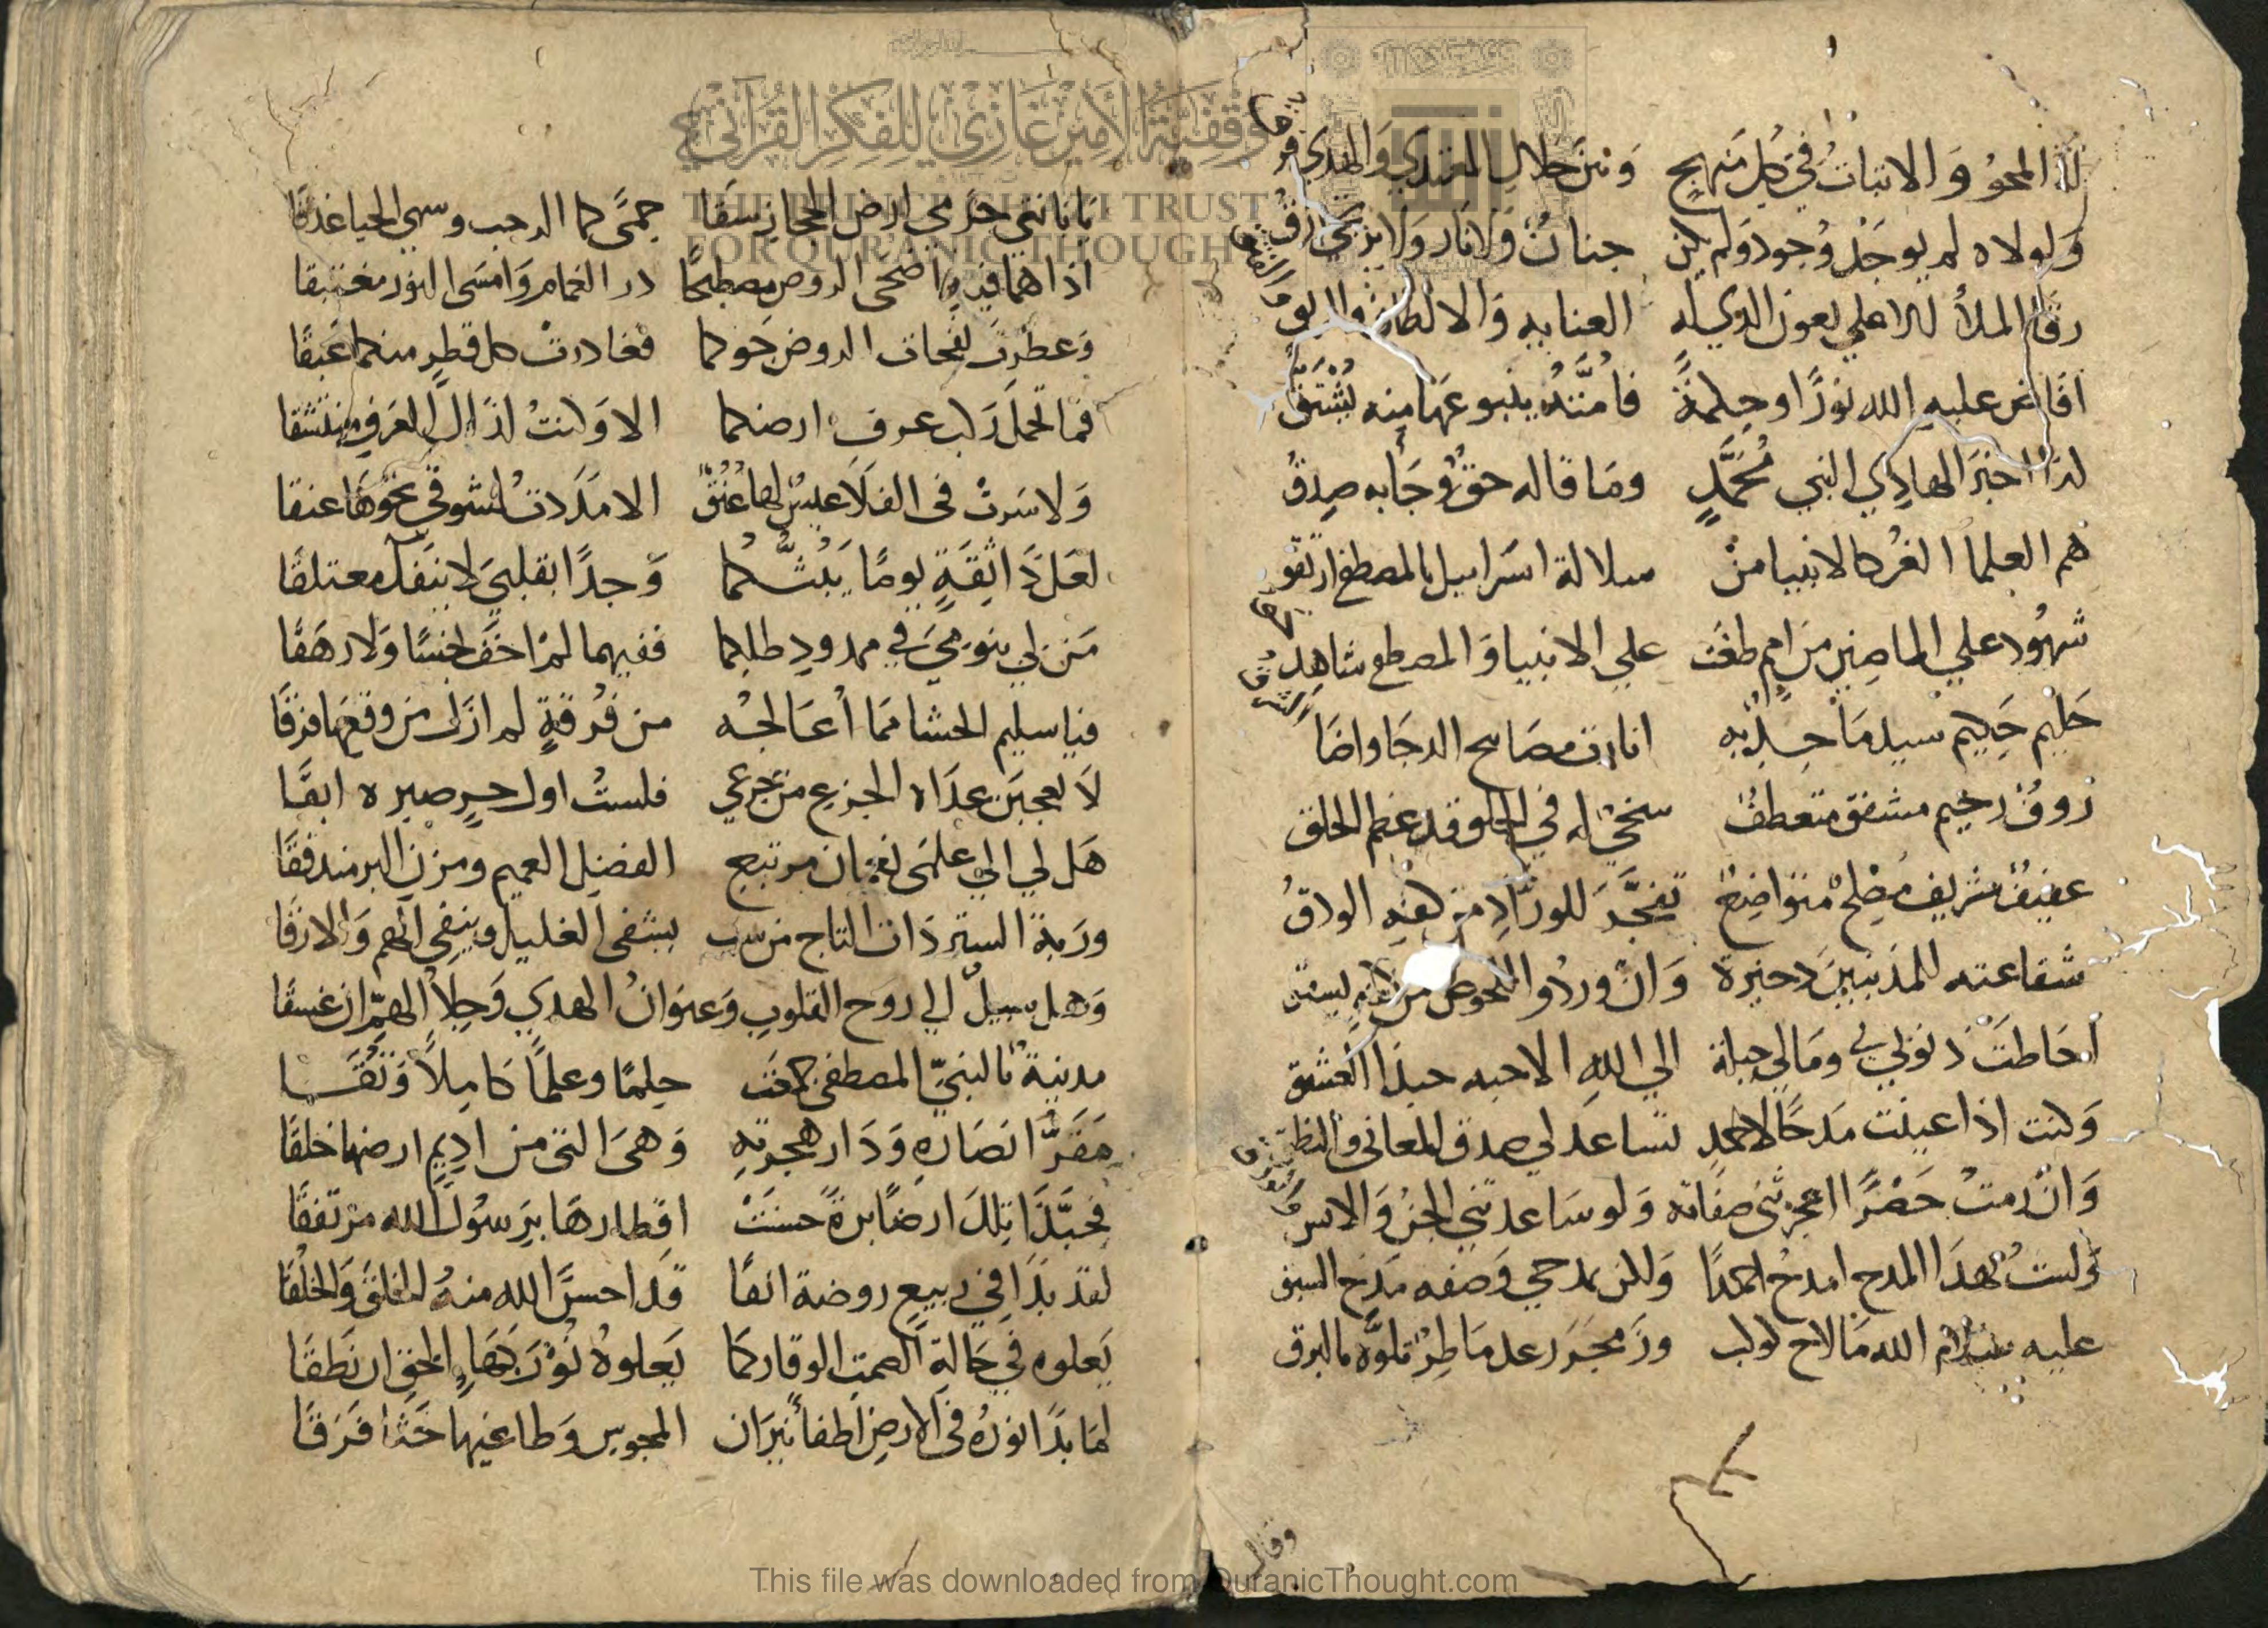 له المحو والاثبات في كل منهج وبين ضلال المعتدي والهدي فرقا
ولولاه لم يوجد وجود ولم يكن جنان ولا نار ولا
رقا الملأ الاعلي بعون الذي له العنايه والالطاف
افاض عليه الله نورًا وحكمةً فامته ينبو عها منه يشتق
لذا اخبر الهادي النبي محمدٍ وما قاله حق وجا به صدق
هم العلما الغر كالانبيا من سلالة اسراييل بالمصطفي ارتقو
شهود علي الماضين من امم طغت علي الانبيا والمصطفي شاهد
حليم حكيم سيد ماحٍ انارت مصابيح الدجا واضا
روف رحيم مشفق متعطف سخي له في الخلق قد عظم الخلق
عفيف شريف مصلح متواضع تفجر للوراد من كفه الودق
شفاعته للمذنبين دخيرة وان وردوا للحوض من
احاطت ذنوبي بي ومالي حيلة الي الله الا حبه حبذا العشق
وكنت اذا عينت مدحًا لاحمد تساعدلي صدق المعاني والنطق
وان رمت حصرًا اعجزتني صفاته ولو ساعدتني الجن والانس
ولست بهذا المدح امدح احمدًا ولكن بمدحي وصفه مدح السبق
عليه سلام الله ما لاح كوكب وزمجر رعد ماطر تلوه بالبرق
وقال
يا بانتي حرمي ارض الحجاز سقا حمى كما الرحب وسمي الحيا غدقا
اذا هما فيه اضحى الروض مصطبحًا در الغمام وامسى النور مغتبقا
وعطرت نفحات الروض جوكما فغادرت كل قطر منكما عبقًا
فما تحمل ركب عرف ارضكما الا وكنت لذاك العرف منتشقا
ولا سرت في الفلا عيس لها عنق الا مددت لشوقي نحوها عنقا
لعل ذا ثقة يومًا يبثكما وجدًا بقلبي لا ينفك معتلقا
من لي بنومي في ممدود ظلكما ففيهما لم اخف بخسًا ولا رهقًا
فيا سليم الحشا مما أعالجه من فرقة لم ازل من وقعها فرقًا
لا تعجبن عداة الجزع من جزعي فلست اول حر صبره ابقًا
هل لي الي علمي نعمان مرتبع الفضل العميم ومزن البر مندفقًا
وربة الستر ذات التاج من سبب يشفي الغليل وينفي الهم والارقا
وهل سبيل الي روح القلوب وعنوان الهدي وجلا الهم ان غسقا
مدينة بالنبي المصطفى جمعت حلمًا وعلمًا كاملًا وتقا
مقر انصاره ودار هجرته وهي التي من اديم ارضها خلقا
فحبذا تلك ارضًا برة حسنت اقطارها برسول الله مرتفقًا
لقد بدا في ربيع روضة انفًا قد احسن الله منه الخلق والخلقا
يعلوه في حالة الصمت الوقار كما يعلوه نور بهاء الحق ان نطقا
لما بدا نوره في الارض اطفأ نيران المجوس وطاغيها حثا فرقا
وقفية الأمير غازي للفكر القرآني
THE PRINCE GHAZI TRUST
FOR QUR'ANIC THOUGHT
This file was downloaded from QuranicThought.com